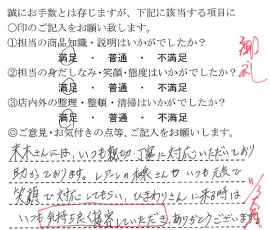 誠にお手数とは存じますが、下記に該当する項目に
○印のご記入をお願い致します。
①担当の商品知識・説明はいかがでしたか?
満足 ・ 普通 ・ 不満足
②担当の身だしなみ・笑顔・態度はいかがでしたか?
満足 ・ 普通 ・ 不満足
③店内外の整理・整頓・清掃はいかがでしたか?
満足 ・ 普通 ・ 不満足
◎ご意見・お気付きの点等、ご記入をお願いします。
さんには、いつも親切、丁寧に対応いただいており
助かっております。さんもいつも元気で
笑顔で対応してもらい、ひまわりさんに来る時は
いつも気持ち良くしていただき、ありがとうございます
御礼